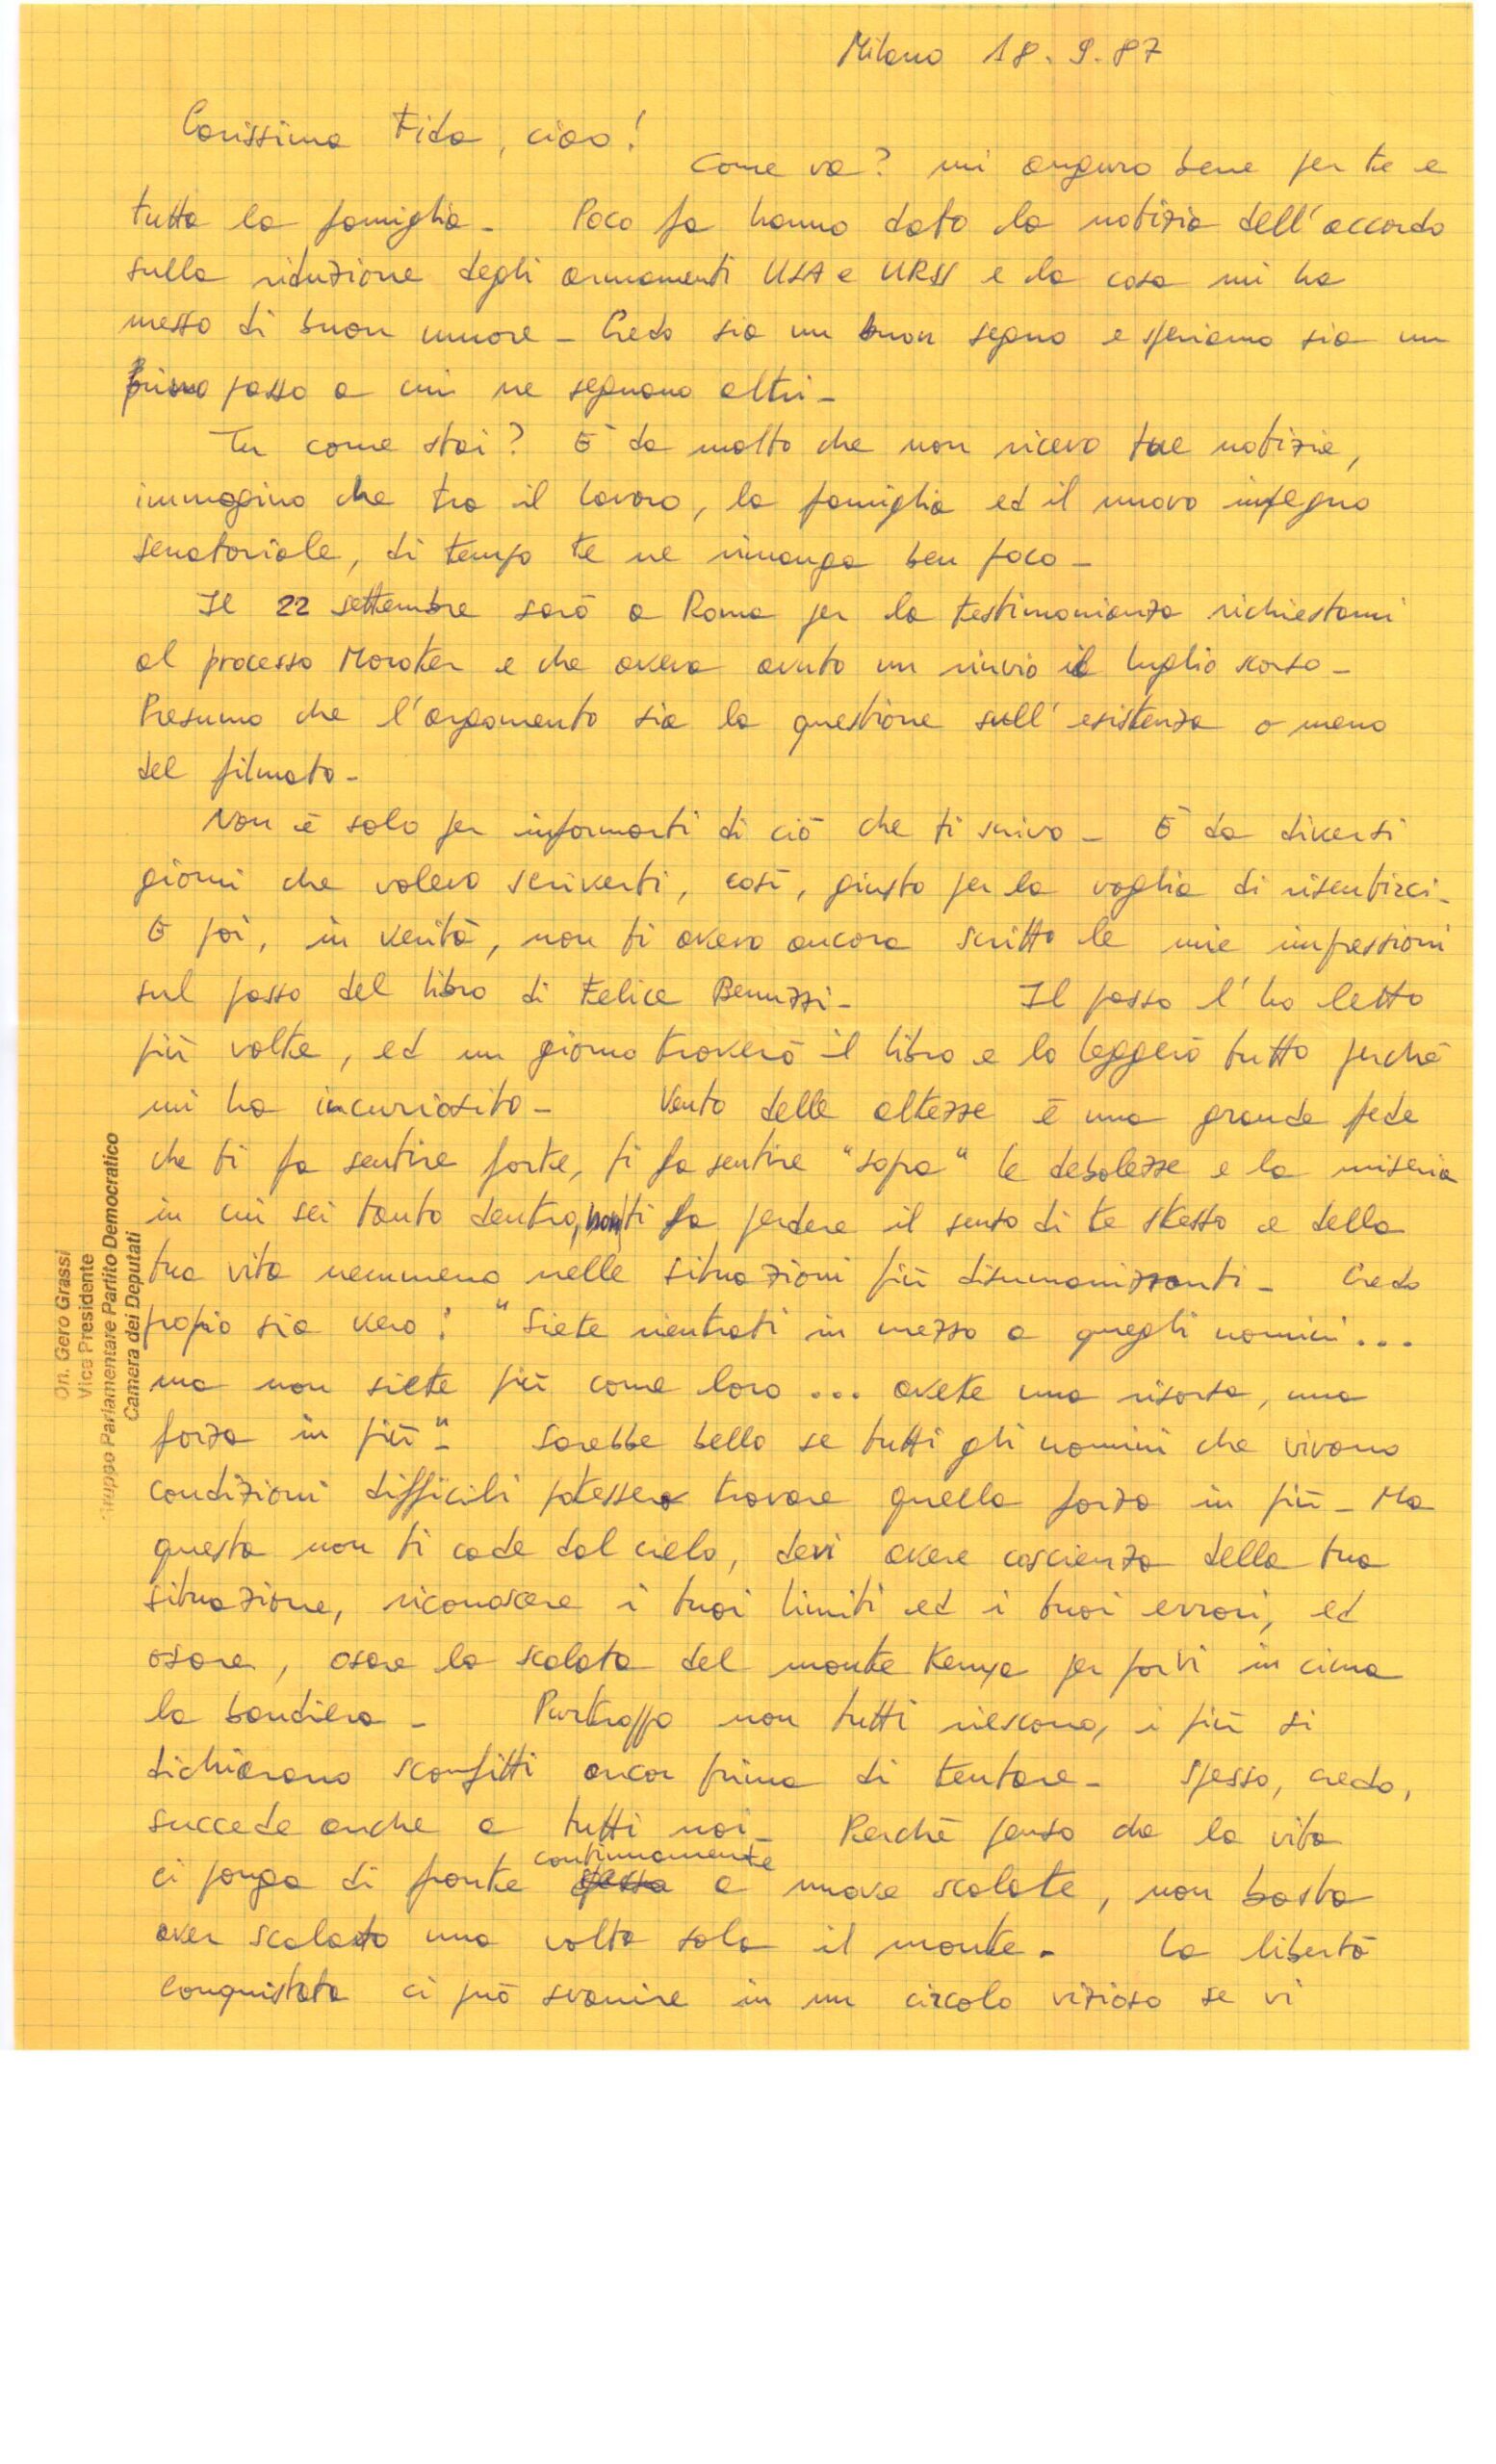 Milano 18.9.87
Carissima Fida, ciao!
Come va? mi auguro bene per te e
tutta la famiglia - Poco fa hanno dato la notizia dell'accordo
sulla riduzione degli armamenti USA e URSS e la cosa mi ha
messo di buon umore - Credo sia un buon segno e speriamo sia un
primo passo a cui ne seguano altri -
Tu come stai? È da molto che non ricevo tue notizie,
immagino che tra il lavoro, la famiglia ed il nuovo impegno
senatoriale, di tempo te ne rimanga ben poco -
Il 22 settembre sarò a Roma per la testimonianza richiestami
al processo Moroter e che aveva avuto un rinvio il luglio scorso -
Presumo che l'argomento sia la questione sull'esistenza o meno
del filmato -
Non è solo per informarti di ciò che ti scrivo - È da diversi
giorni che volevo scriverti, così, giusto per la voglia di risentirci -
E poi, in verità, non ti avevo ancora scritto le mie impressioni
sul passo del libro di Felice Benuzzi - Il passo l'ho letto
più volte, ed un giorno troverò il libro e lo leggerò tutto perché
mi ha incuriosito - Vento delle altezze è una grande fede
che ti fa sentire forte, ti fa sentire "sopra" le debolezze e la miseria
in cui sei tanto dentro, non ti fa perdere il senso di te stesso e della
tua vita nemmeno nelle situazioni più disumanizzanti - Credo
propio sia vero: "Siete rientrati in mezzo a quegli uomini...
ma non siete più come loro... avete una risorsa, una
forza in più" - Sarebbe bello se tutti gli uomini che vivono
condizioni difficili potessero trovare quella forza in più - Ma
questa non ti cade dal cielo, devi avere coscienza della tua
situazione, riconoscere i tuoi limiti ed i tuoi errori, ed
osare, osare la scalata del monte Kenya per porvi in cima
la bandiera - Purtroppo non tutti riescono, i più si
dichiarano sconfitti ancor prima di tentare - Spesso, credo,
succede anche a tutti noi - Perché penso che la vita
continuamente
ci ponga di fronte spesso a nuove scalate, non basta
aver scalato una volta sola il monte - La libertà
conquistata ci può svanire in un circolo vizioso se vi
On. Gero Grassi
Vice Presidente
Gruppo Parlamentare Partito Democratico
Camera dei Deputati